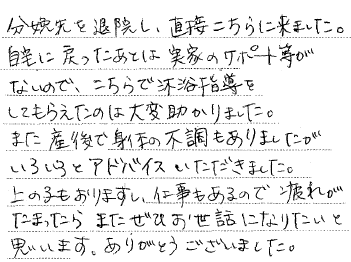 分娩先を退院し、直接こちらに来ました。
自宅に戻ったあとは実家のサポート等が
ないので、こちらで沐浴指導を
してもらえたのは大変助かりました。
また産後で身体の不調もありましたが
いろいろとアドバイスいただきました。
上の子もおりますし、仕事もあるので疲れが
たまったら またぜひお世話になりたいと
思います。ありがとうございました。